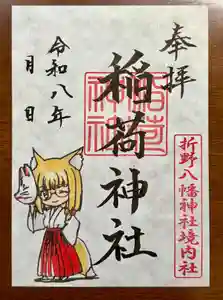 奉拝
稲荷神社
折野八幡神社境内社
令和八年
月 日